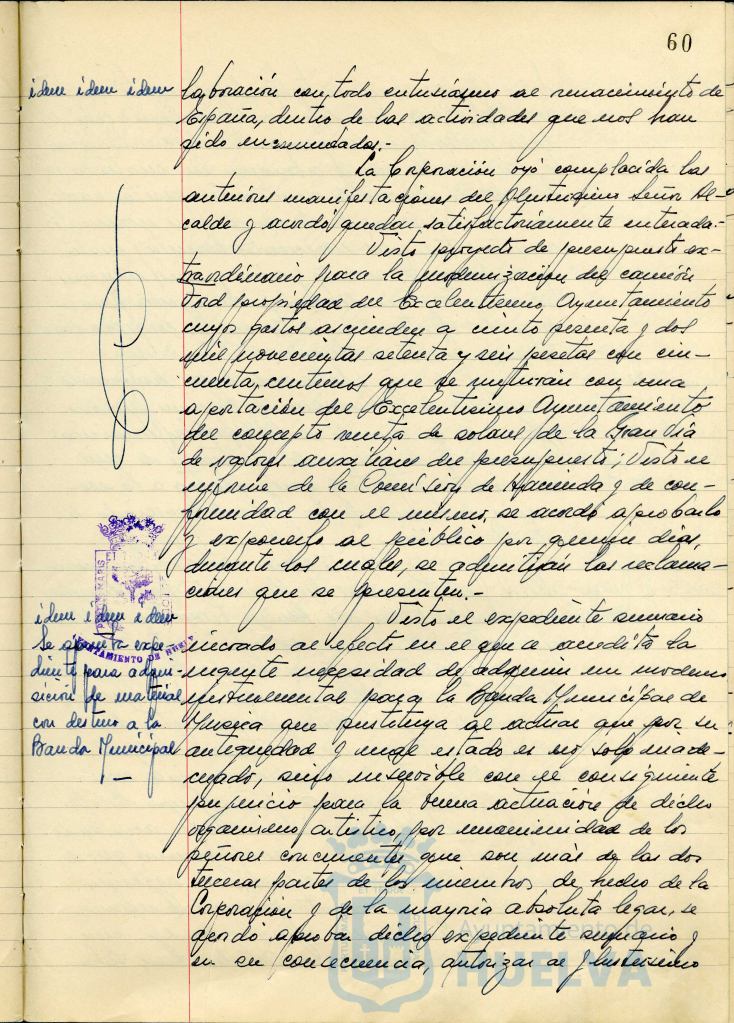 60
idem idem idem
laboración con todo entusiasmo al renacimiento de
España, dentro de las actividades que nos han
sido encomendadas.-
La Corporación oyó complacida las
anteriores manifestaciones del Ilustrísimo Señor Al-
calde y acordó quedar satisfactoriamente enterada.-
Visto proyecto de presupuesto ex-
traordinario para la modernización del camión
Ford propiedad del Excelentísimo Ayuntamiento
cuyos gastos ascienden a ciento sesenta y dos
mil novecientas setenta y seis pesetas con cin-
cuenta centimos que se nutrirán con una
aportación del Excelentísimo Ayuntamiento
del concepto venta de solares de la Gran Vía
de valores auxiliares del presupuesto; Visto el
informe de la Comisión de Hacienda y de con-
formidad con el mismo, se acordó aprobarlo
y exponerlo al público por quince días,
durante los cuales, se admitirán las reclama-
ciones que se presenten.-
idem idem idem
Se aprueba expe-
diente para adqui-
sición de material
con destino a la
Banda Municipal
AYUNTAMIENTO DE HUELVA
Visto el expediente sumario
incoado al efecto en el que se acredita la
urgente necesidad de adquirir un moderno
instrumental para la Banda Municipal de
Música que sustituya al actual que por su
antiguedad y mal estado es no solo inade-
cuado, sino inservible con el consiguiente
perjuicio para la buena actuación de dicho
organismo artístico, por unanimidad de los
señores concurrentes que son más de las dos
terceras partes de los miembros de hecho de la
Corporación y de la mayoría absoluta legal, se
acordó aprobar dicho expediente sumario y
en su consecuencia, autorizar al Ilustrísimo
Ayuntamiento de
HUELVA